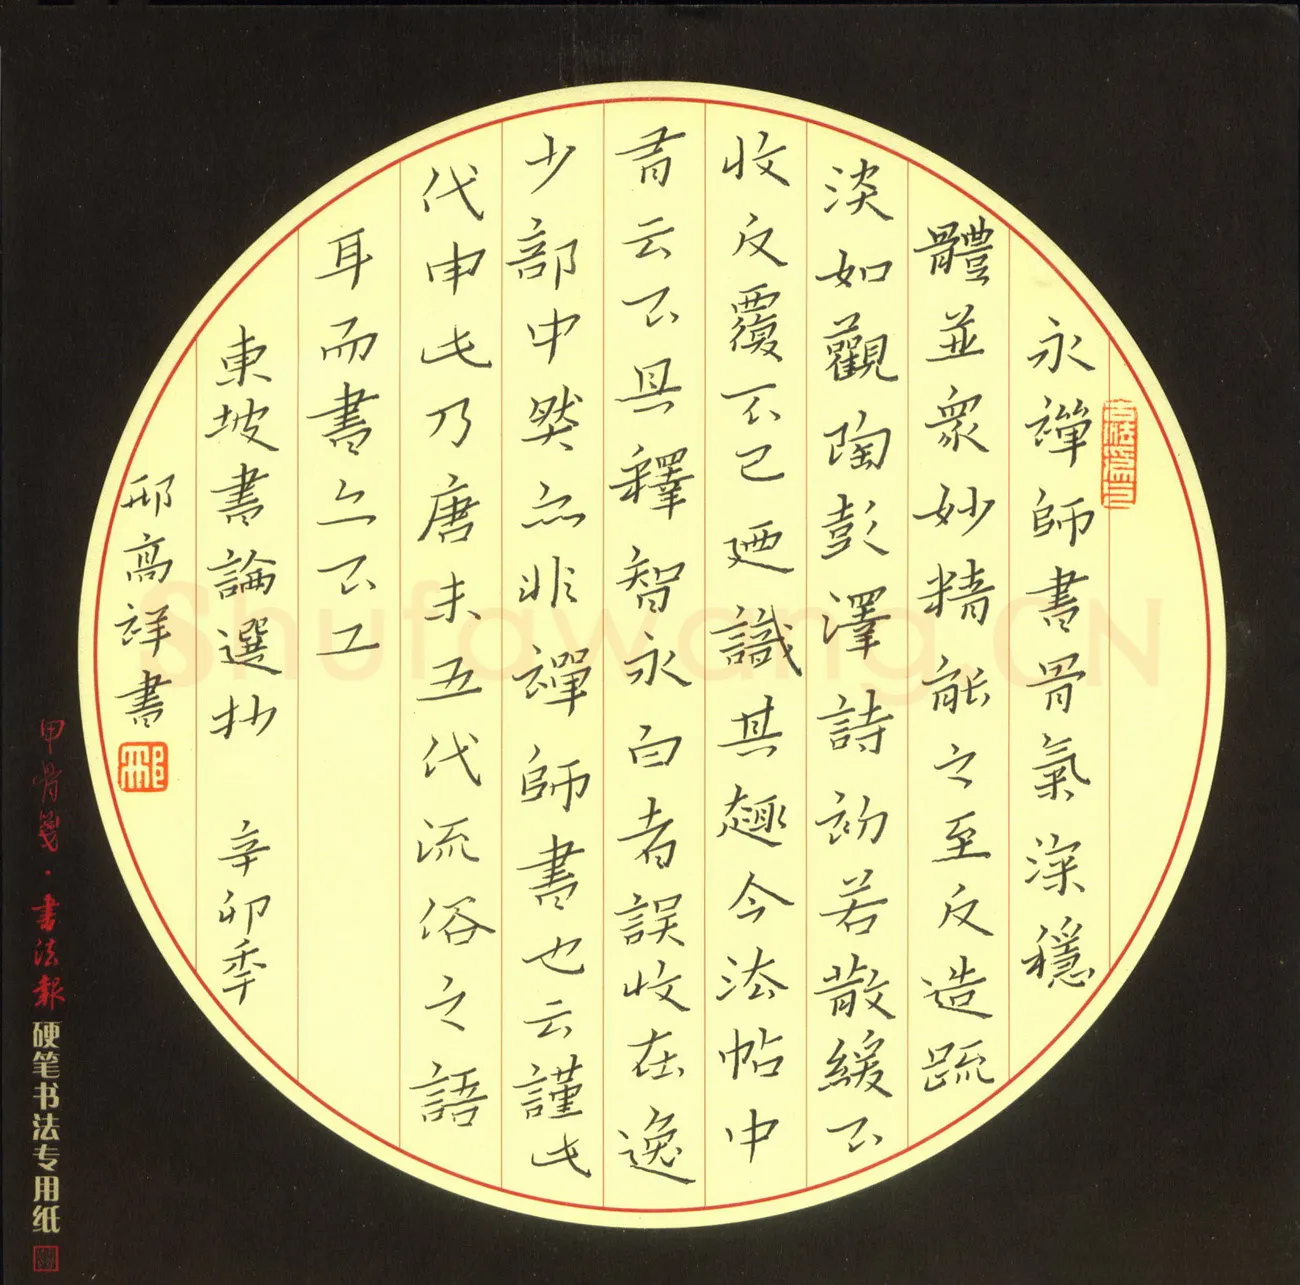 永禪師書骨氣深穩
體並眾妙精能之至反造疏
淡如觀陶彭澤詩初若散緩不
收反覆不已廼識其趣今法帖中
有云不具釋智永白者誤收在逸
少部中然亦非禪師書也云謹此
代申此乃唐末五代流俗之語
耳而書亦不工
東坡書論選抄 辛卯季
邢高祥書
邢
甲骨箋·書法報硬笔书法专用纸
Shufawang.CN